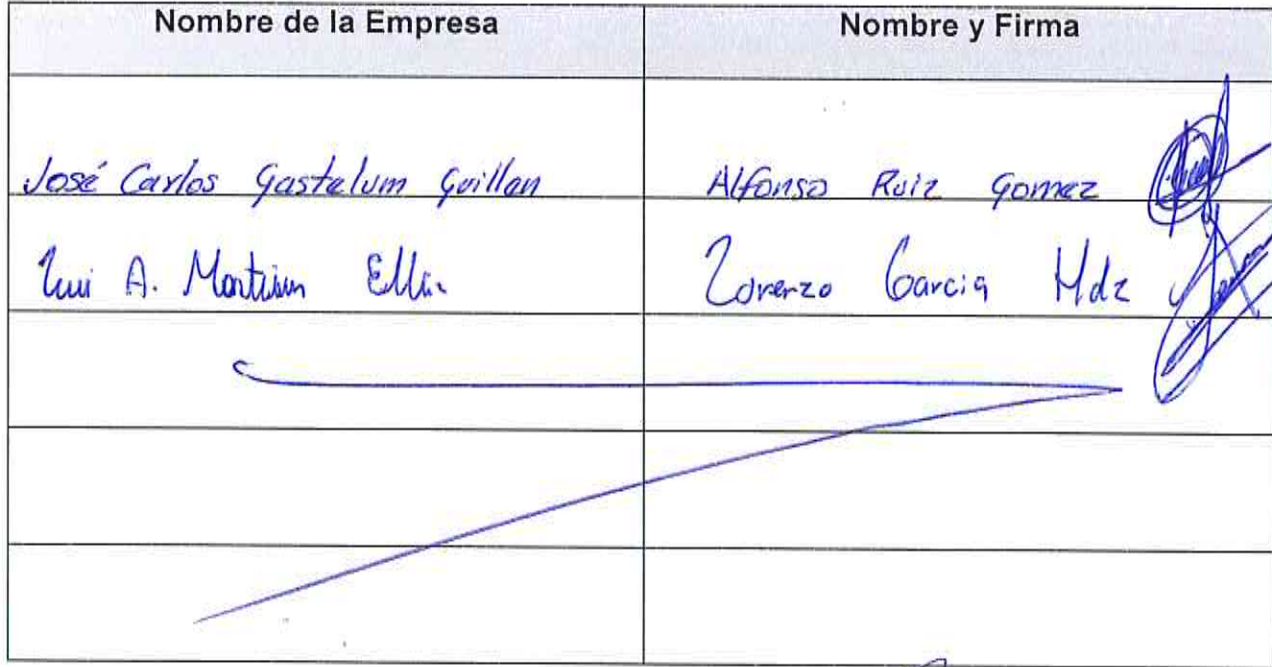 Nombre de la Empresa Nombre y Firma
José Carlos Gastelum Guillan Alfonso Ruiz Gomez
Luis A. Lorenzo Garcia Hdz